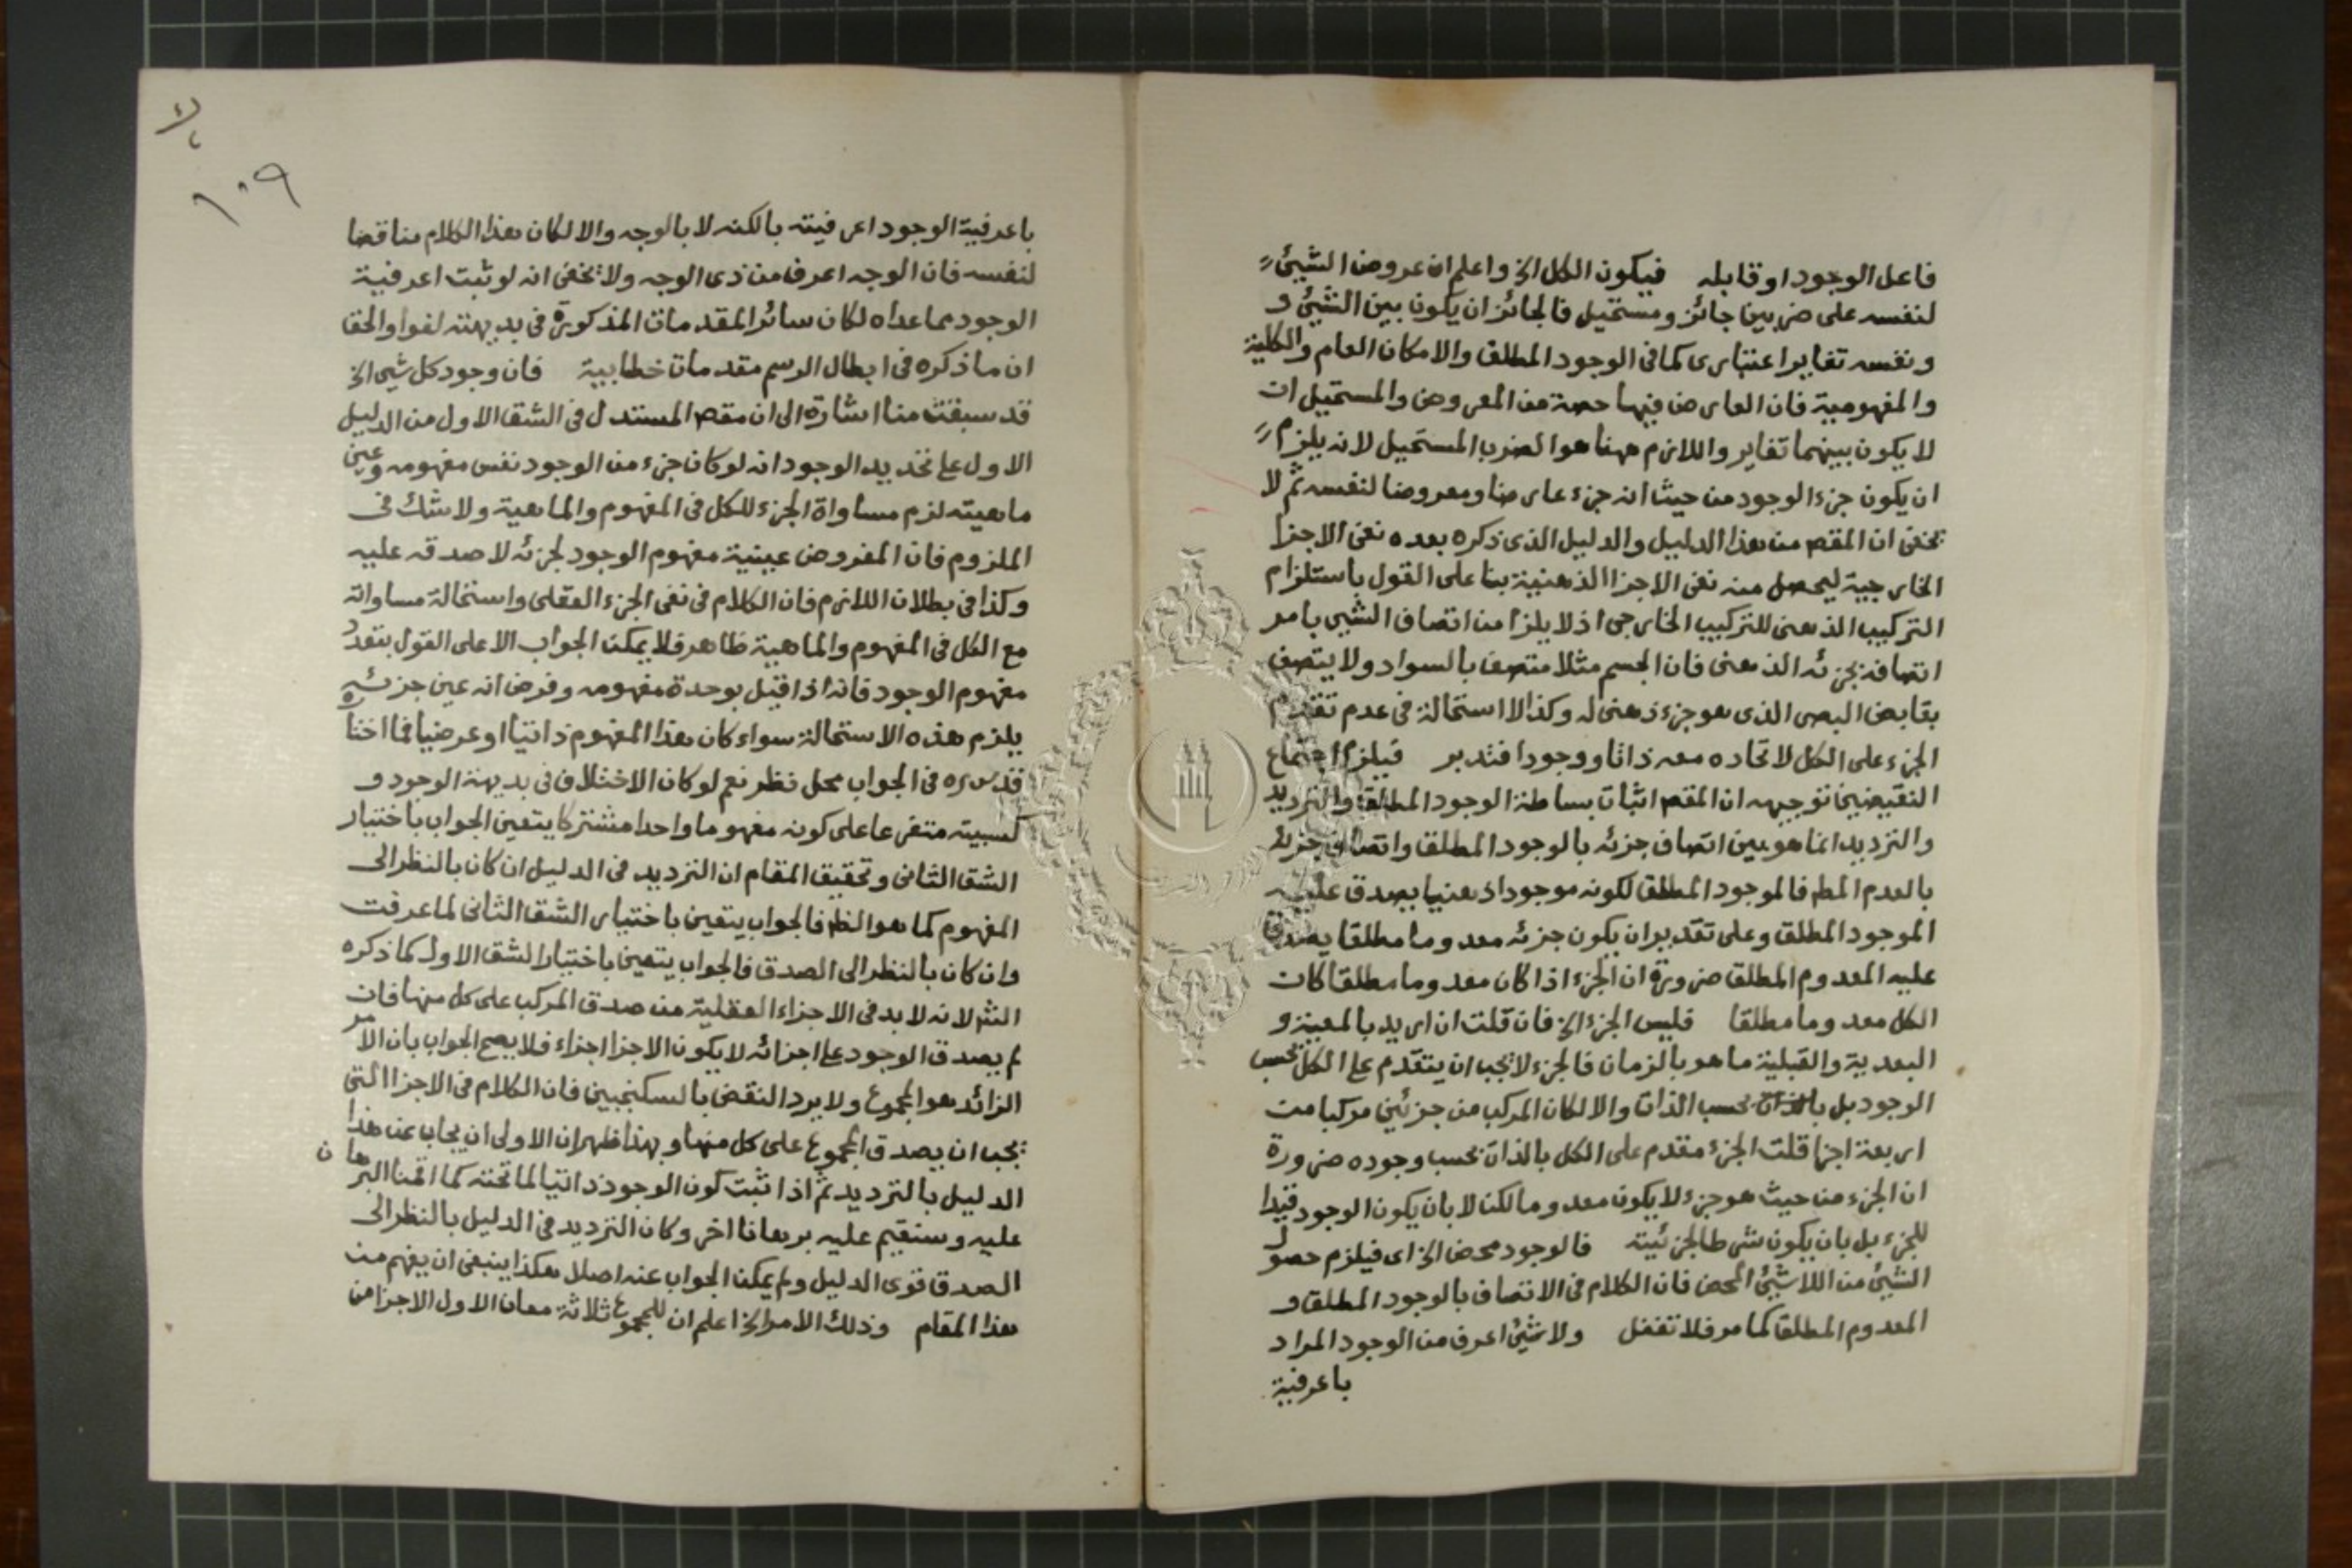 فاعل الوجود او قابله فيكون الكل الخ واعلم ان عروض الشيئ
لنفسه على ضربين جائز ومستحيل فالجائز ان يكون بين الشيئ و
ونفسه تغاير اعتبارى كما فى الوجود المطلق والامكان العام والكلية
والمفهومية فان العارض فيها حصة من المعروض والمستحيل ان
لا يكون بينهما تغاير واللازم ههنا هو الضرب المستحيل لانه يلزم
ان يكون جزء الوجود من حيث انه جزء عارضا ومعروضا لنفسه ثم لا
يخفى ان المقص من هذا الدليل والدليل الذى ذكره بعده نفى الاجزا
الخارجية ليحصل منه نفى الاجزا الذهنية بنا على القول باستلزام
التركيب الذهنى للتركيب الخارجى اذ لا يلزم من اتصاف الشيى بامر
اتصافه بجزئه الذهنى فان الجسم مثلا متصف بالسواد ولا يتصف
بقابض البصر الذى هو جزء ذهنى له وكذا لا استحالة فى عدم تقدم
الجزء على الكل لاتحاده معه ذاتا ووجودا فتدبر فيلزم اجتماع
النقيضين توجيهه ان المقص اثبات بساطة الوجود المطلق والترديد
والترديد انما هو بين اتصاف جزئه بالوجود المطلق واتصاف جزئه
بالعدم المط فالموجود المطلق لكونه موجودا ذهنيا يصدق عليه
الموجود المطلق وعلى تقدير ان يكون جزئه معدوما مطلقا يصدق
عليه المعدوم المطلق ضرورة ان الجزء اذا كان معدوما مطلقا كان
الكل معدوما مطلقا فليس الجزء الخ فان قلت ان اريد بالمعية و
البعدية والقبلية ما هو بالزمان فالجزء لا يجب ان يتقدم على الكل بحسب
الوجود بل بالذات بحسب الذات والا لكان المركب من جزئين مركبا من
اربعة اجزا قلت الجزء مقدم على الكل بالذات بحسب وجوده ضرورة
ان الجزء من حيث هو جزء لا يكون معدوما لكن لا بان يكون الوجود قيدا
للجزء بل بان يكون شرطا لجزئيته فالوجود محض الخ اى فيلزم حصول
الشيئ من اللاشيئ المحض فان الكلام فى الاتصاف بالوجود المطلق و
المعدوم المطلق كما مر فلا تغفل ولا شيئ اعرف من الوجود المراد
باعرفية
١٠٩
باعرفية الوجود اعرفيته بالكنه لا بالوجه والا لكان هذا الكلام مناقضا
لنفسه فان الوجه اعرف من ذى الوجه ولا يخفى انه لو ثبت اعرفية
الوجود مما عداه لكان سائر المقدمات المذكورة فى بديهته لغوا والحق
ان ما ذكره فى ابطال الرسم مقدمات خطابية فان وجود كل شيى الخ
قد سبقت منا اشارة الى ان مقص المستدل فى الشق الاول من الدليل
الاول على تحديد الوجود انه لو كان جزء من الوجود نفس مفهومه وعين
ماهيته لزم مساواة الجزء للكل فى المفهوم والماهية ولا شك فى
الملزوم فان المفروض عينية مفهوم الوجود لجزئه لا صدقه عليه
وكذا فى بطلان اللازم فان الكلام فى نفى الجزء العقلى واستحالة مساواته
مع الكل فى المفهوم والماهية ظاهر فلا يمكن الجواب الا على القول بتعدد
مفهوم الوجود فانه اذا قيل بوحدة مفهومه وفرض انه عين جزئه
يلزم هذه الاستحالة سواء كان هذا المفهوم ذاتيا او عرضيا فما اختاره
قدس سره فى الجواب محل نظر نعم لو كان الاختلاف فى بديهة الوجود و
كسبيته متفرعا على كونه مفهوما واحدا مشتركا يتعين الجواب باختيار
الشق الثانى وتحقيق المقام ان الترديد فى الدليل ان كان بالنظر الى
المفهوم كما هو الظ فالجواب يتعين باختيار الشق الثانى لما عرفت
وان كان بالنظر الى الصدق فالجواب يتعين باختيار الشق الاول كما ذكره
الش لانه لا بد فى الاجزاء العقلية من صدق المركب على كل منها فان
لم يصدق الوجود على اجزائه لا يكون الاجزا اجزاء فلا يصح الجواب بان الامر
الزائد هو المجموع ولا يرد النقض بالسكنجبين فان الكلام فى الاجزا التى
يجب ان يصدق المجموع على كل منها وبهذا ظهر ان الاولى ان يجاب عن هذا
الدليل بالترديد ثم اذا ثبت كون الوجود ذاتيا لما تحته كما اقمنا البرهان
عليه وسنقيم عليه برهانا اخر وكان الترديد فى الدليل بالنظر الى
الصدق قوى الدليل ولم يمكن الجواب عنه اصلا هكذا ينبغى ان يفهم من
هذا المقام وذلك الامر الخ اعلم ان للمجموع ثلاثة معان الاول الاجزا من